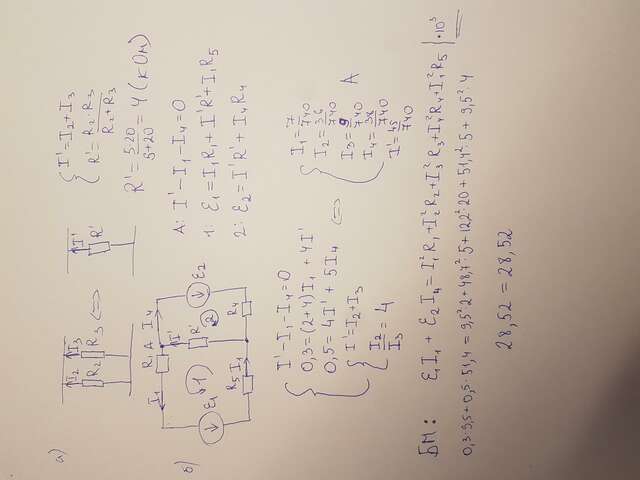 а)
I₂ R₂ I₃ R₃ ⇔ I' R'
{ I' = I₂ + I₃
R' = R₂·R₃ / R₂+R₃
R' = 5·20 / 5+20 = 4 (кОм)
б)
I₁ R₁ A I₄
ε₁ 1 I' R' 2 ε₂
R₅ I₁ R₄
A: I' - I₁ - I₄ = 0
1: ε₁ = I₁R₁ + I'R' + I₁R₅
2: ε₂ = I'R' + I₄R₄
{ I' - I₁ - I₄ = 0
0,3 = (2+4)I₁ + 4I'
0,5 = 4I' + 5I₄
{ I' = I₂ + I₃
I₂ / I₃ = 4
⇔
{ I₁ = 7/740
I₂ = 36/740
I₃ = 9/740 A
I₄ = 38/740
I' = 45/740
БМ: ε₁I₁ + ε₂I₄ = I₁²R₁ + I₂²R₂ + I₃²R₃ + I₄²R₄ + I₁²R₅ | ·10³
0,3·9,5 + 0,5·51,4 = 9,5²·2 + 48,7²·5 + 12,2²·20 + 51,4²·5 + 9,5²·4
28,52 = 28,52